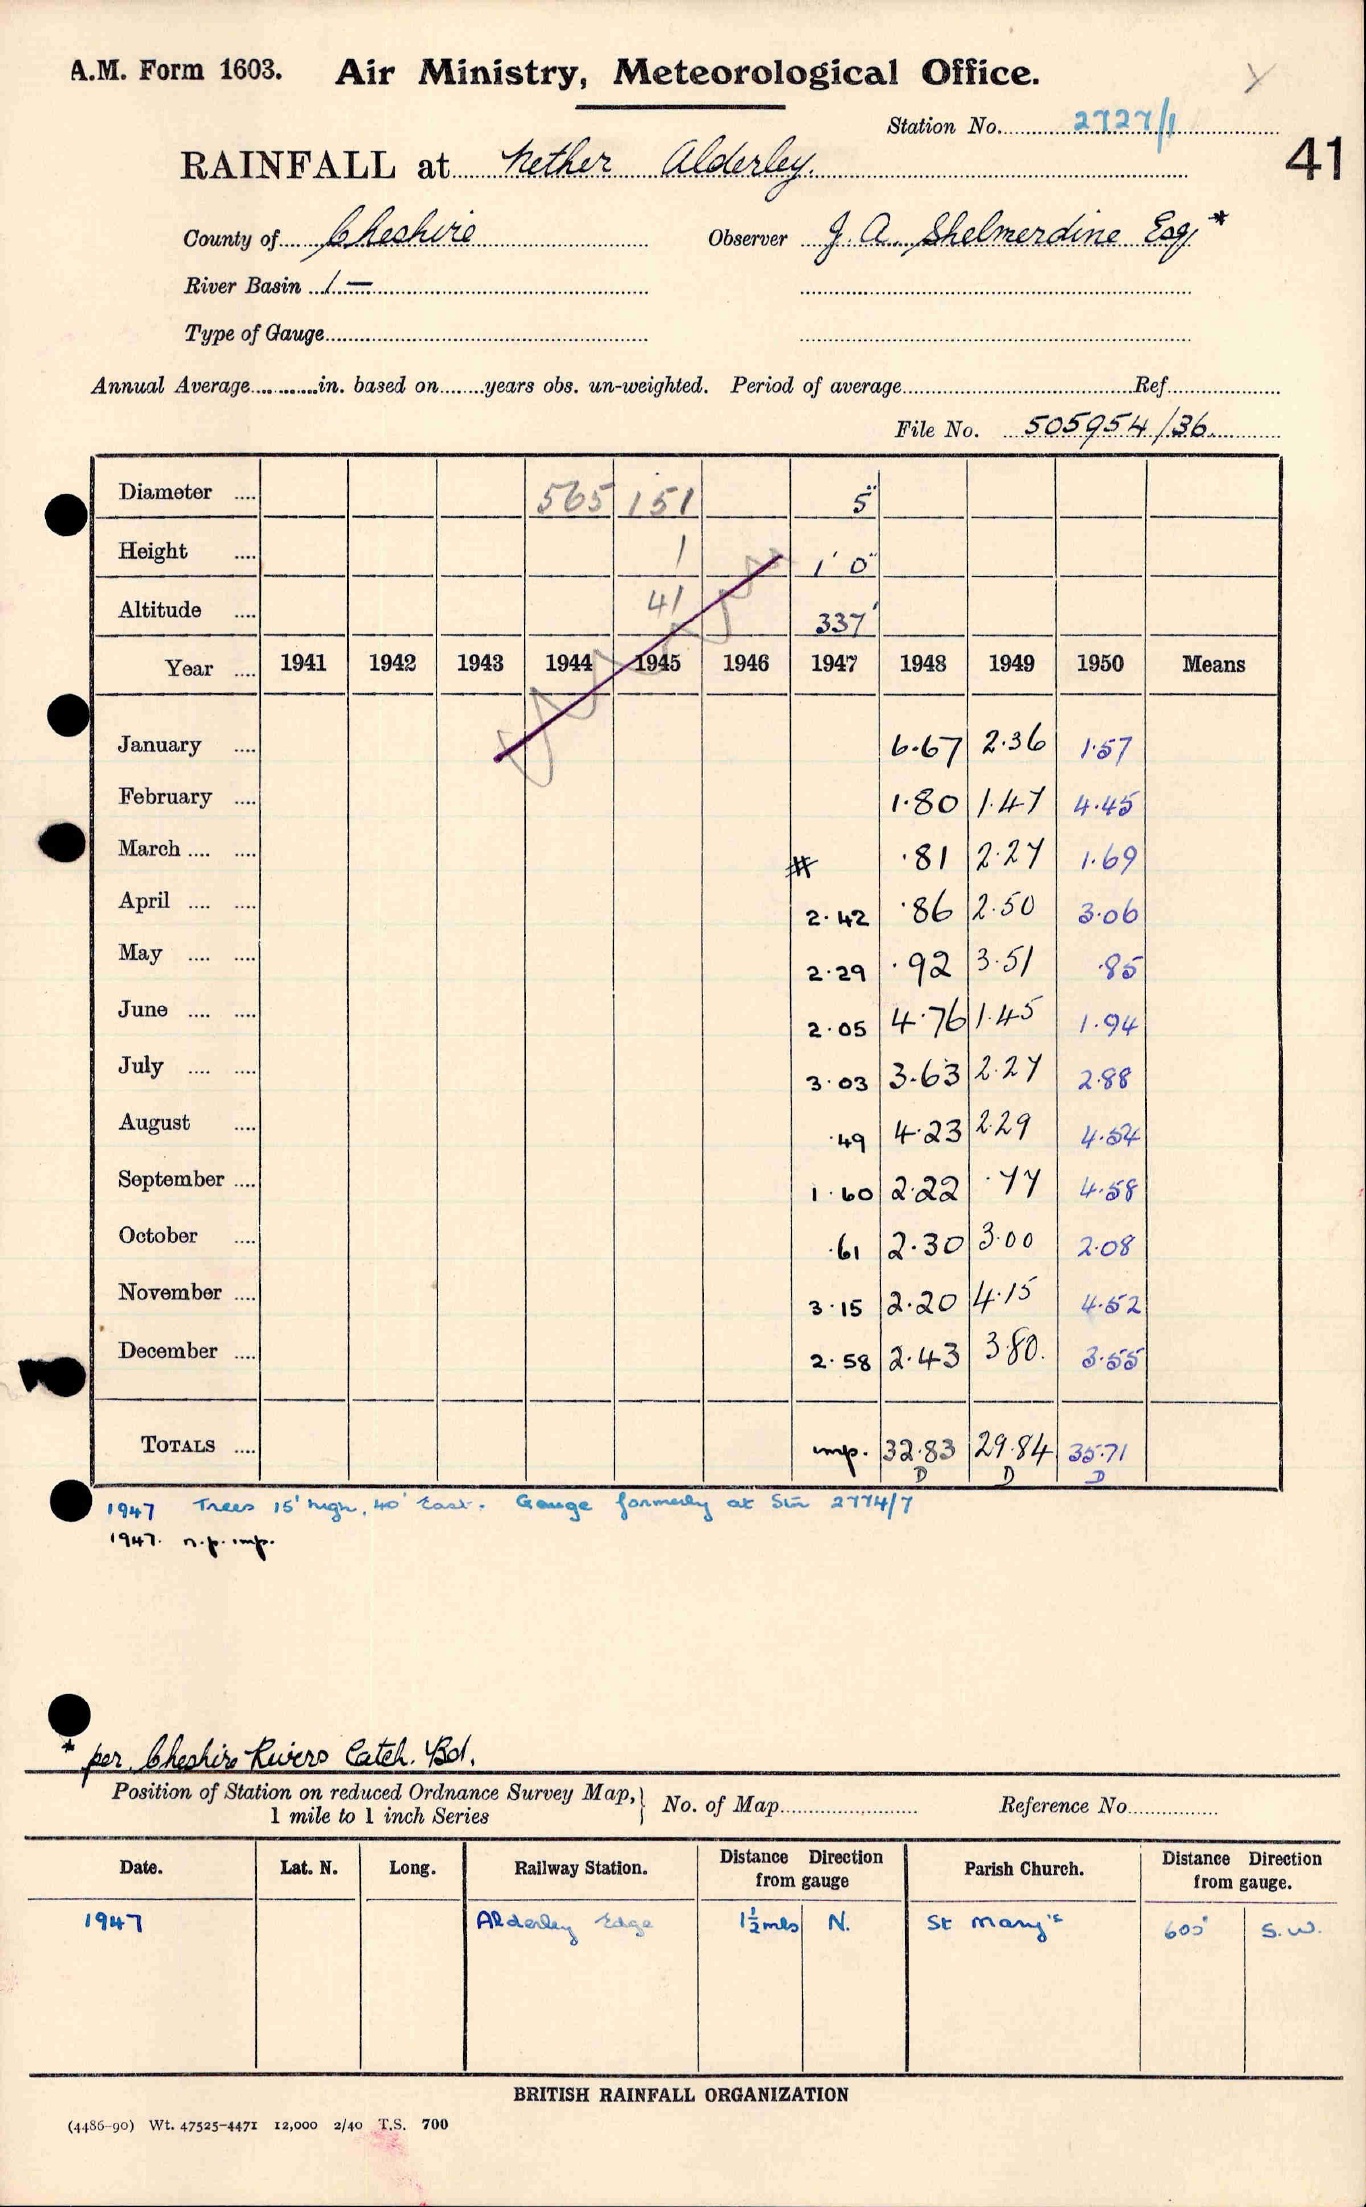 A.M. Form 1603. Air Ministry, Meteorological Office.
Station No. 2727/1
41
RAINFALL at Nether Alderley.
County of Cheshire Observer J. A. Shelmerdine Esq *
River Basin 1 —
Type of Gauge
Annual Average in. based on years obs. un-weighted. Period of average Ref
File No. 505954/36.
Diameter .... 565 151 5"
Height .... 1 1' 0"
Altitude .... 41 337'
Year .... 1941 1942 1943 1944 1945 1946 1947 1948 1949 1950 Means
January .... 6.67 2.36 1.57
February .... 1.80 1.47 4.45
March .... .... # .81 2.27 1.69
April .... .... 2.42 .86 2.50 3.06
May .... .... 2.29 .92 3.51 .85
June .... .... 2.05 4.76 1.45 1.94
July .... .... 3.03 3.63 2.27 2.88
August .... .49 4.23 2.29 4.54
September .... 1.60 2.22 .77 4.58
October .... .61 2.30 3.00 2.08
November .... 3.15 2.20 4.15 4.52
December .... 2.58 2.43 3.80. 3.55
TOTALS .... imp. 32.83 29.84 35.71
D D D
1947 Trees 15' high, 40' East. Gauge formerly at Stn 2774/7
1947. n.p. imp.
* per Cheshire Rivers Catch. Bd.
Position of Station on reduced Ordnance Survey Map, } No. of Map Reference No
1 mile to 1 inch Series
Date. Lat. N. Long. Railway Station. Distance Direction from gauge Parish Church. Distance Direction from gauge.
1947 Alderley Edge 1½ mls N. St Mary's 600' S.W.
BRITISH RAINFALL ORGANIZATION
(4486-90) Wt. 47525-4471 12,000 2/40 T.S. 700